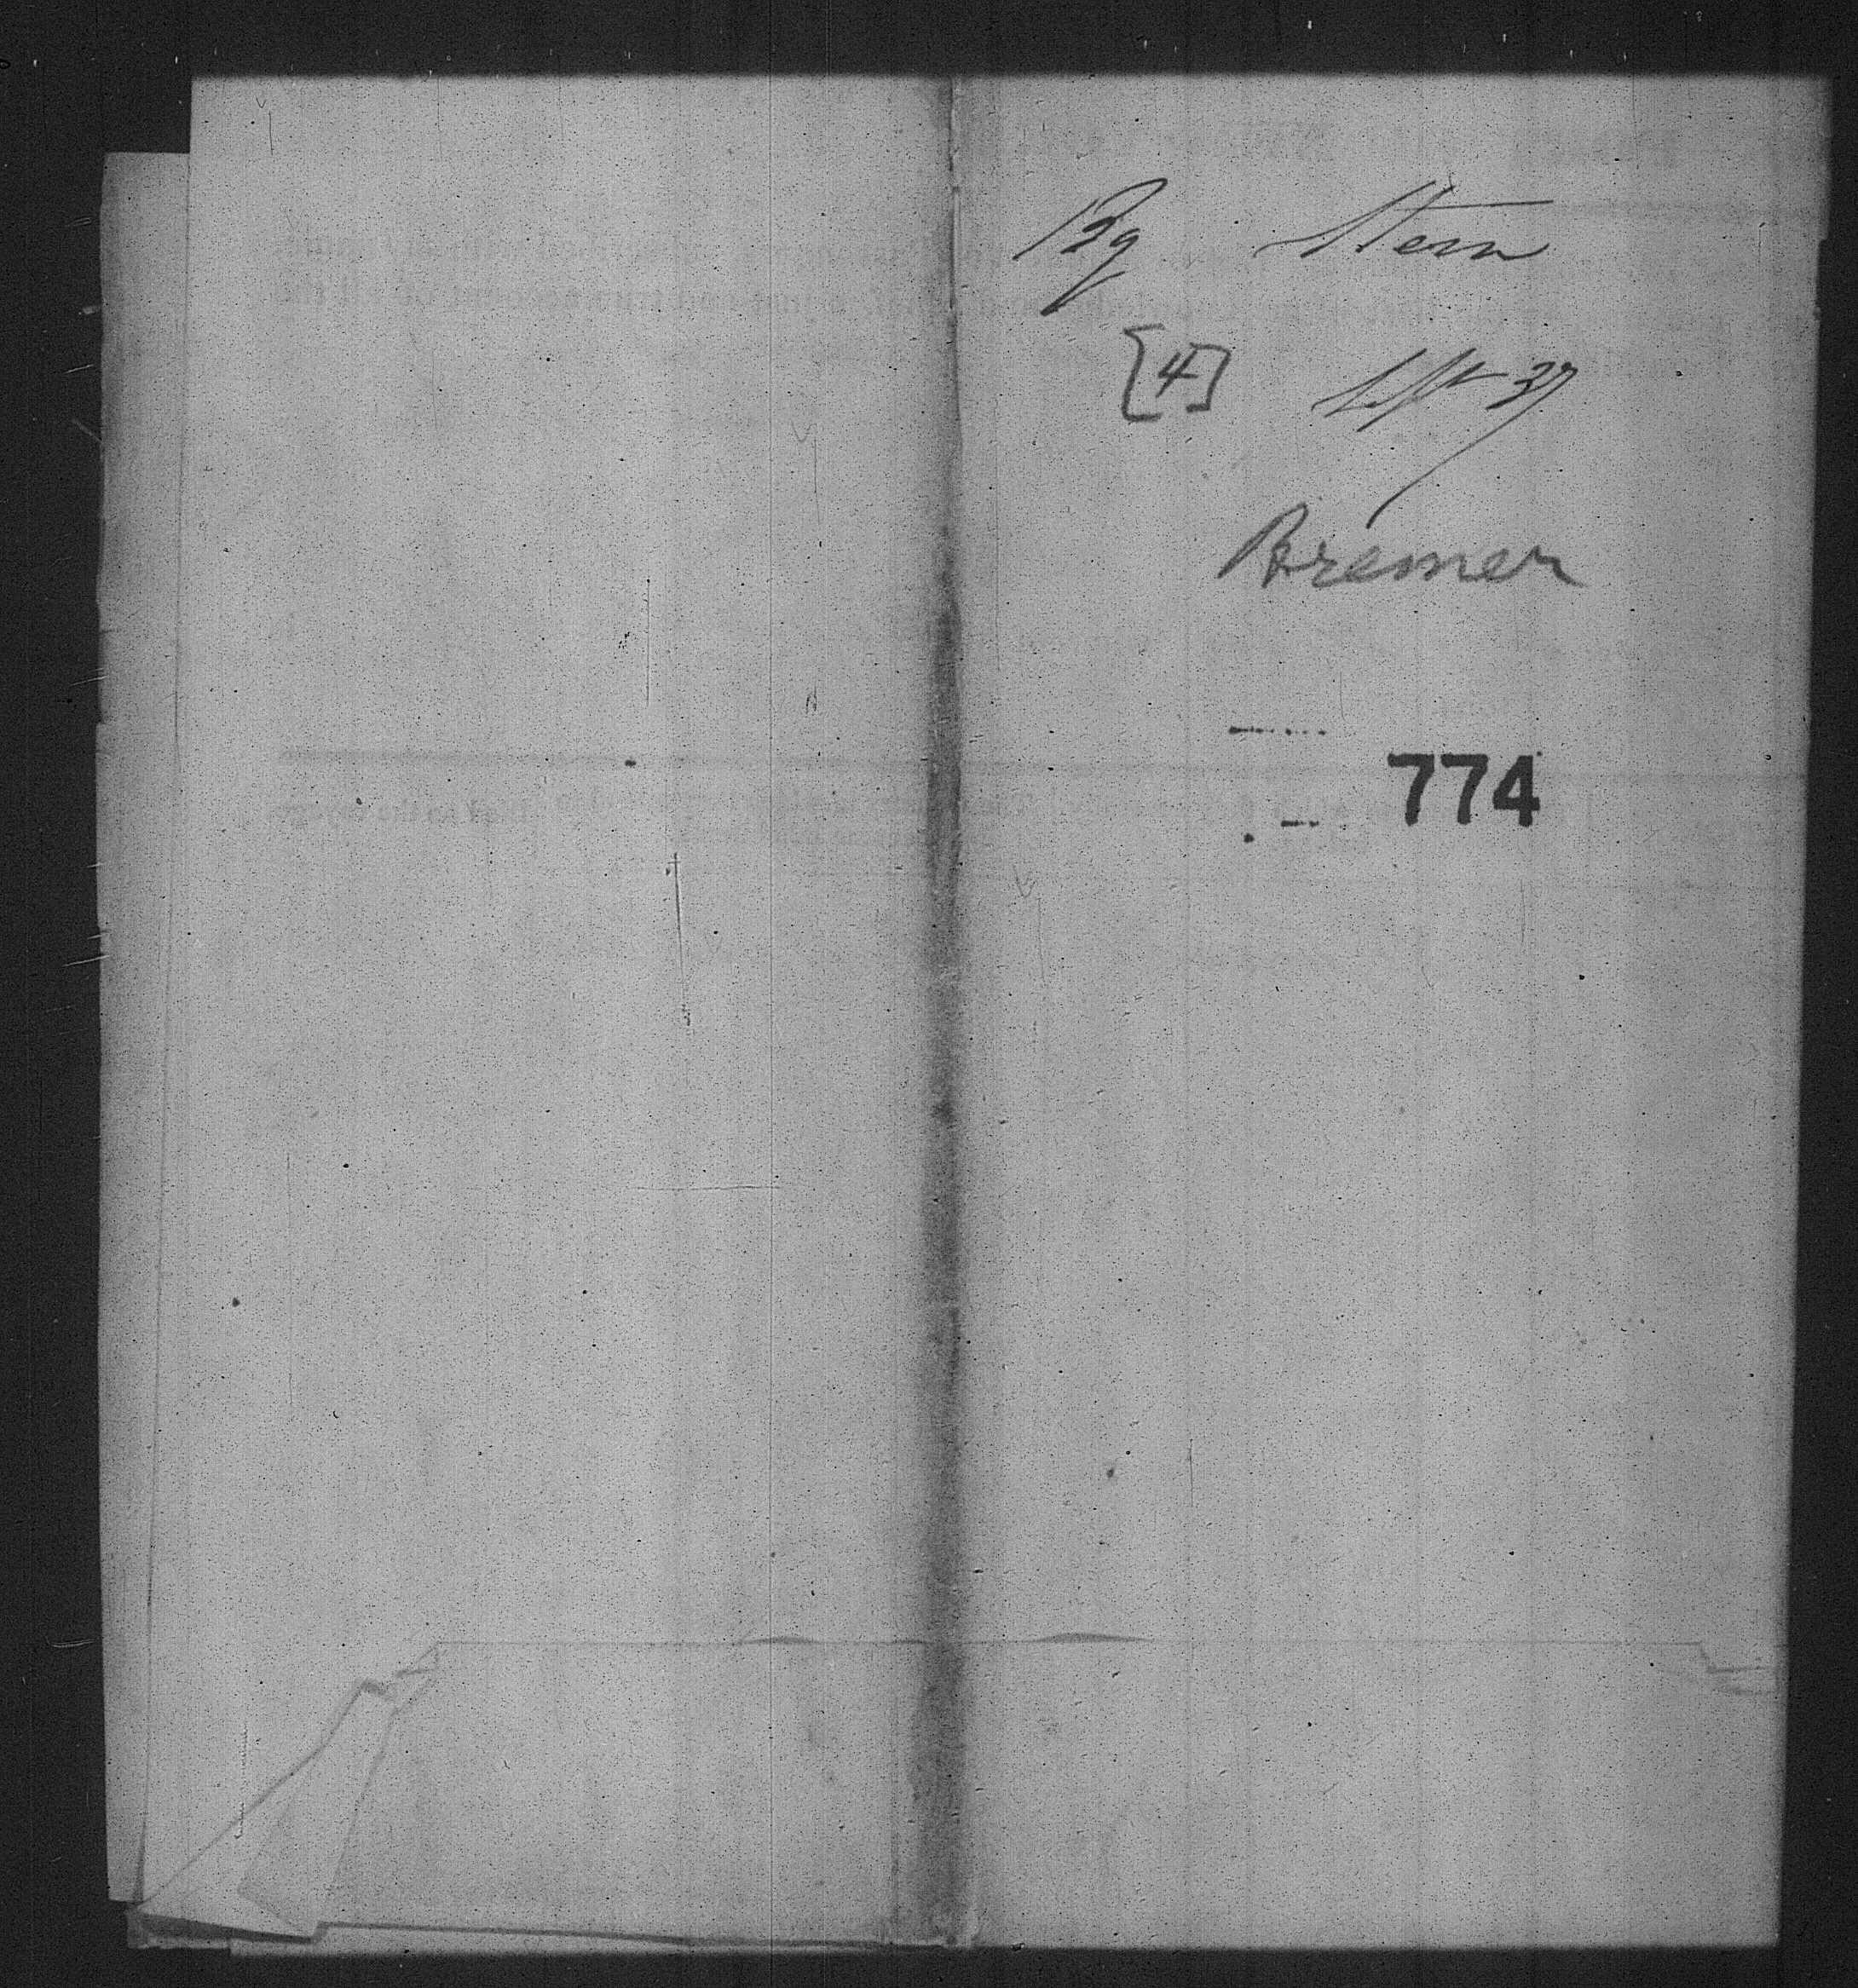 Bg Stern
[4] Sept 37
Bremen
774